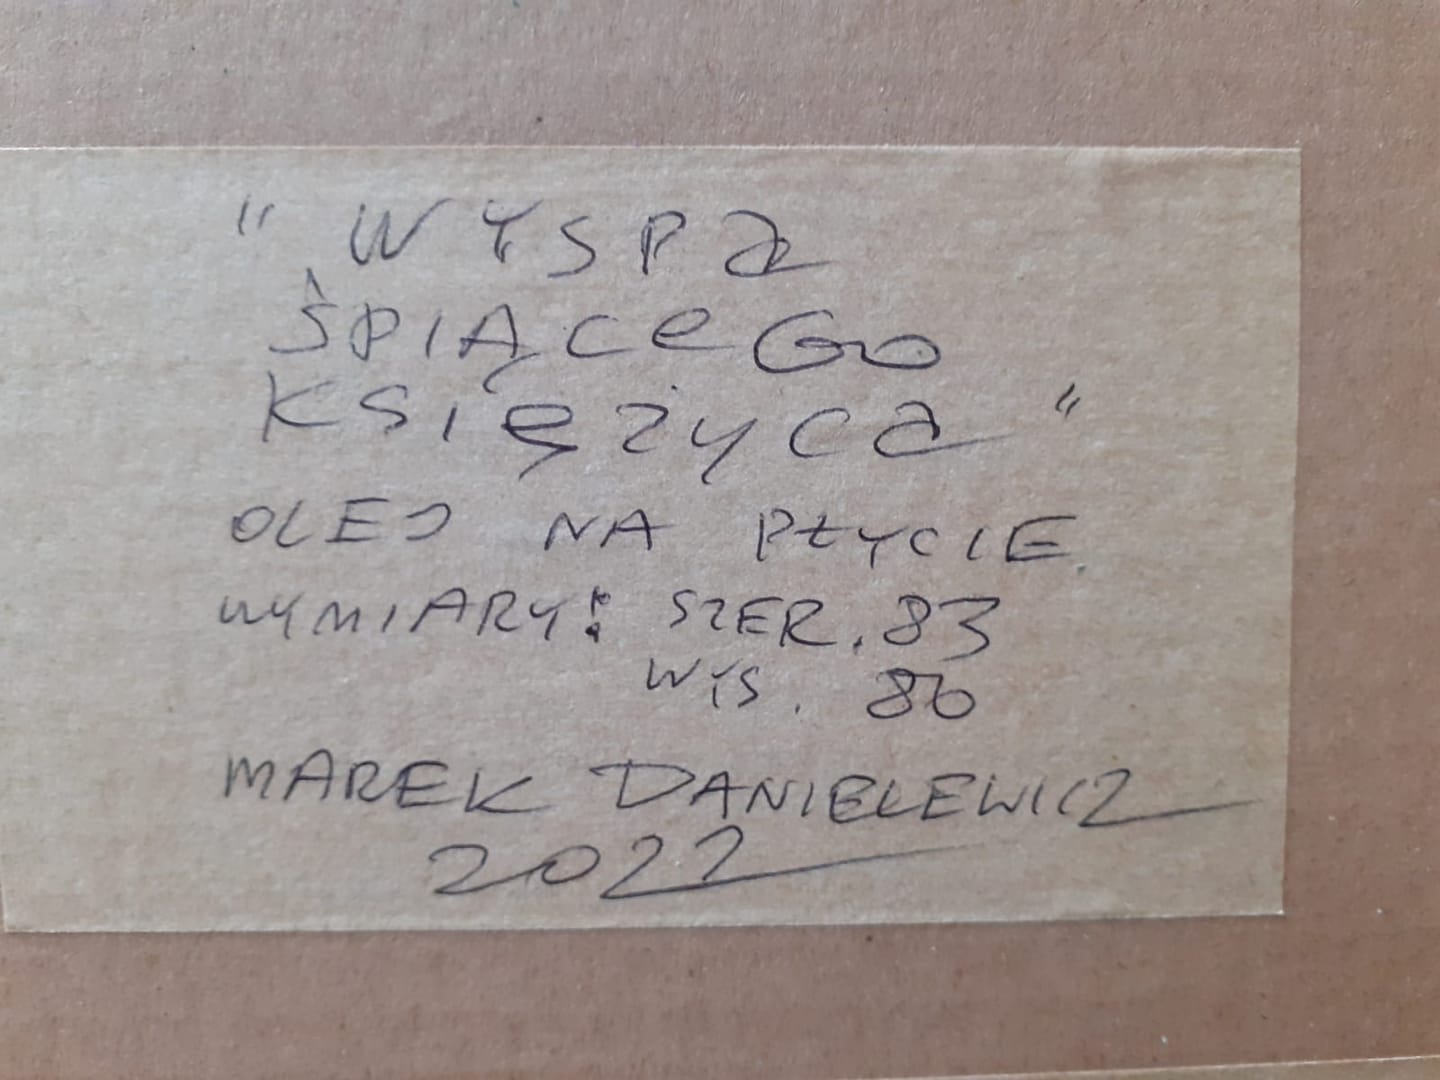 " WYSPa
ŚPIĄCeGO
KSIężyca "
OLEJ NA PŁYCIE.
WYMIARY: SZER. 83
WYS. 80
MAREK DANIELEWICZ
2022